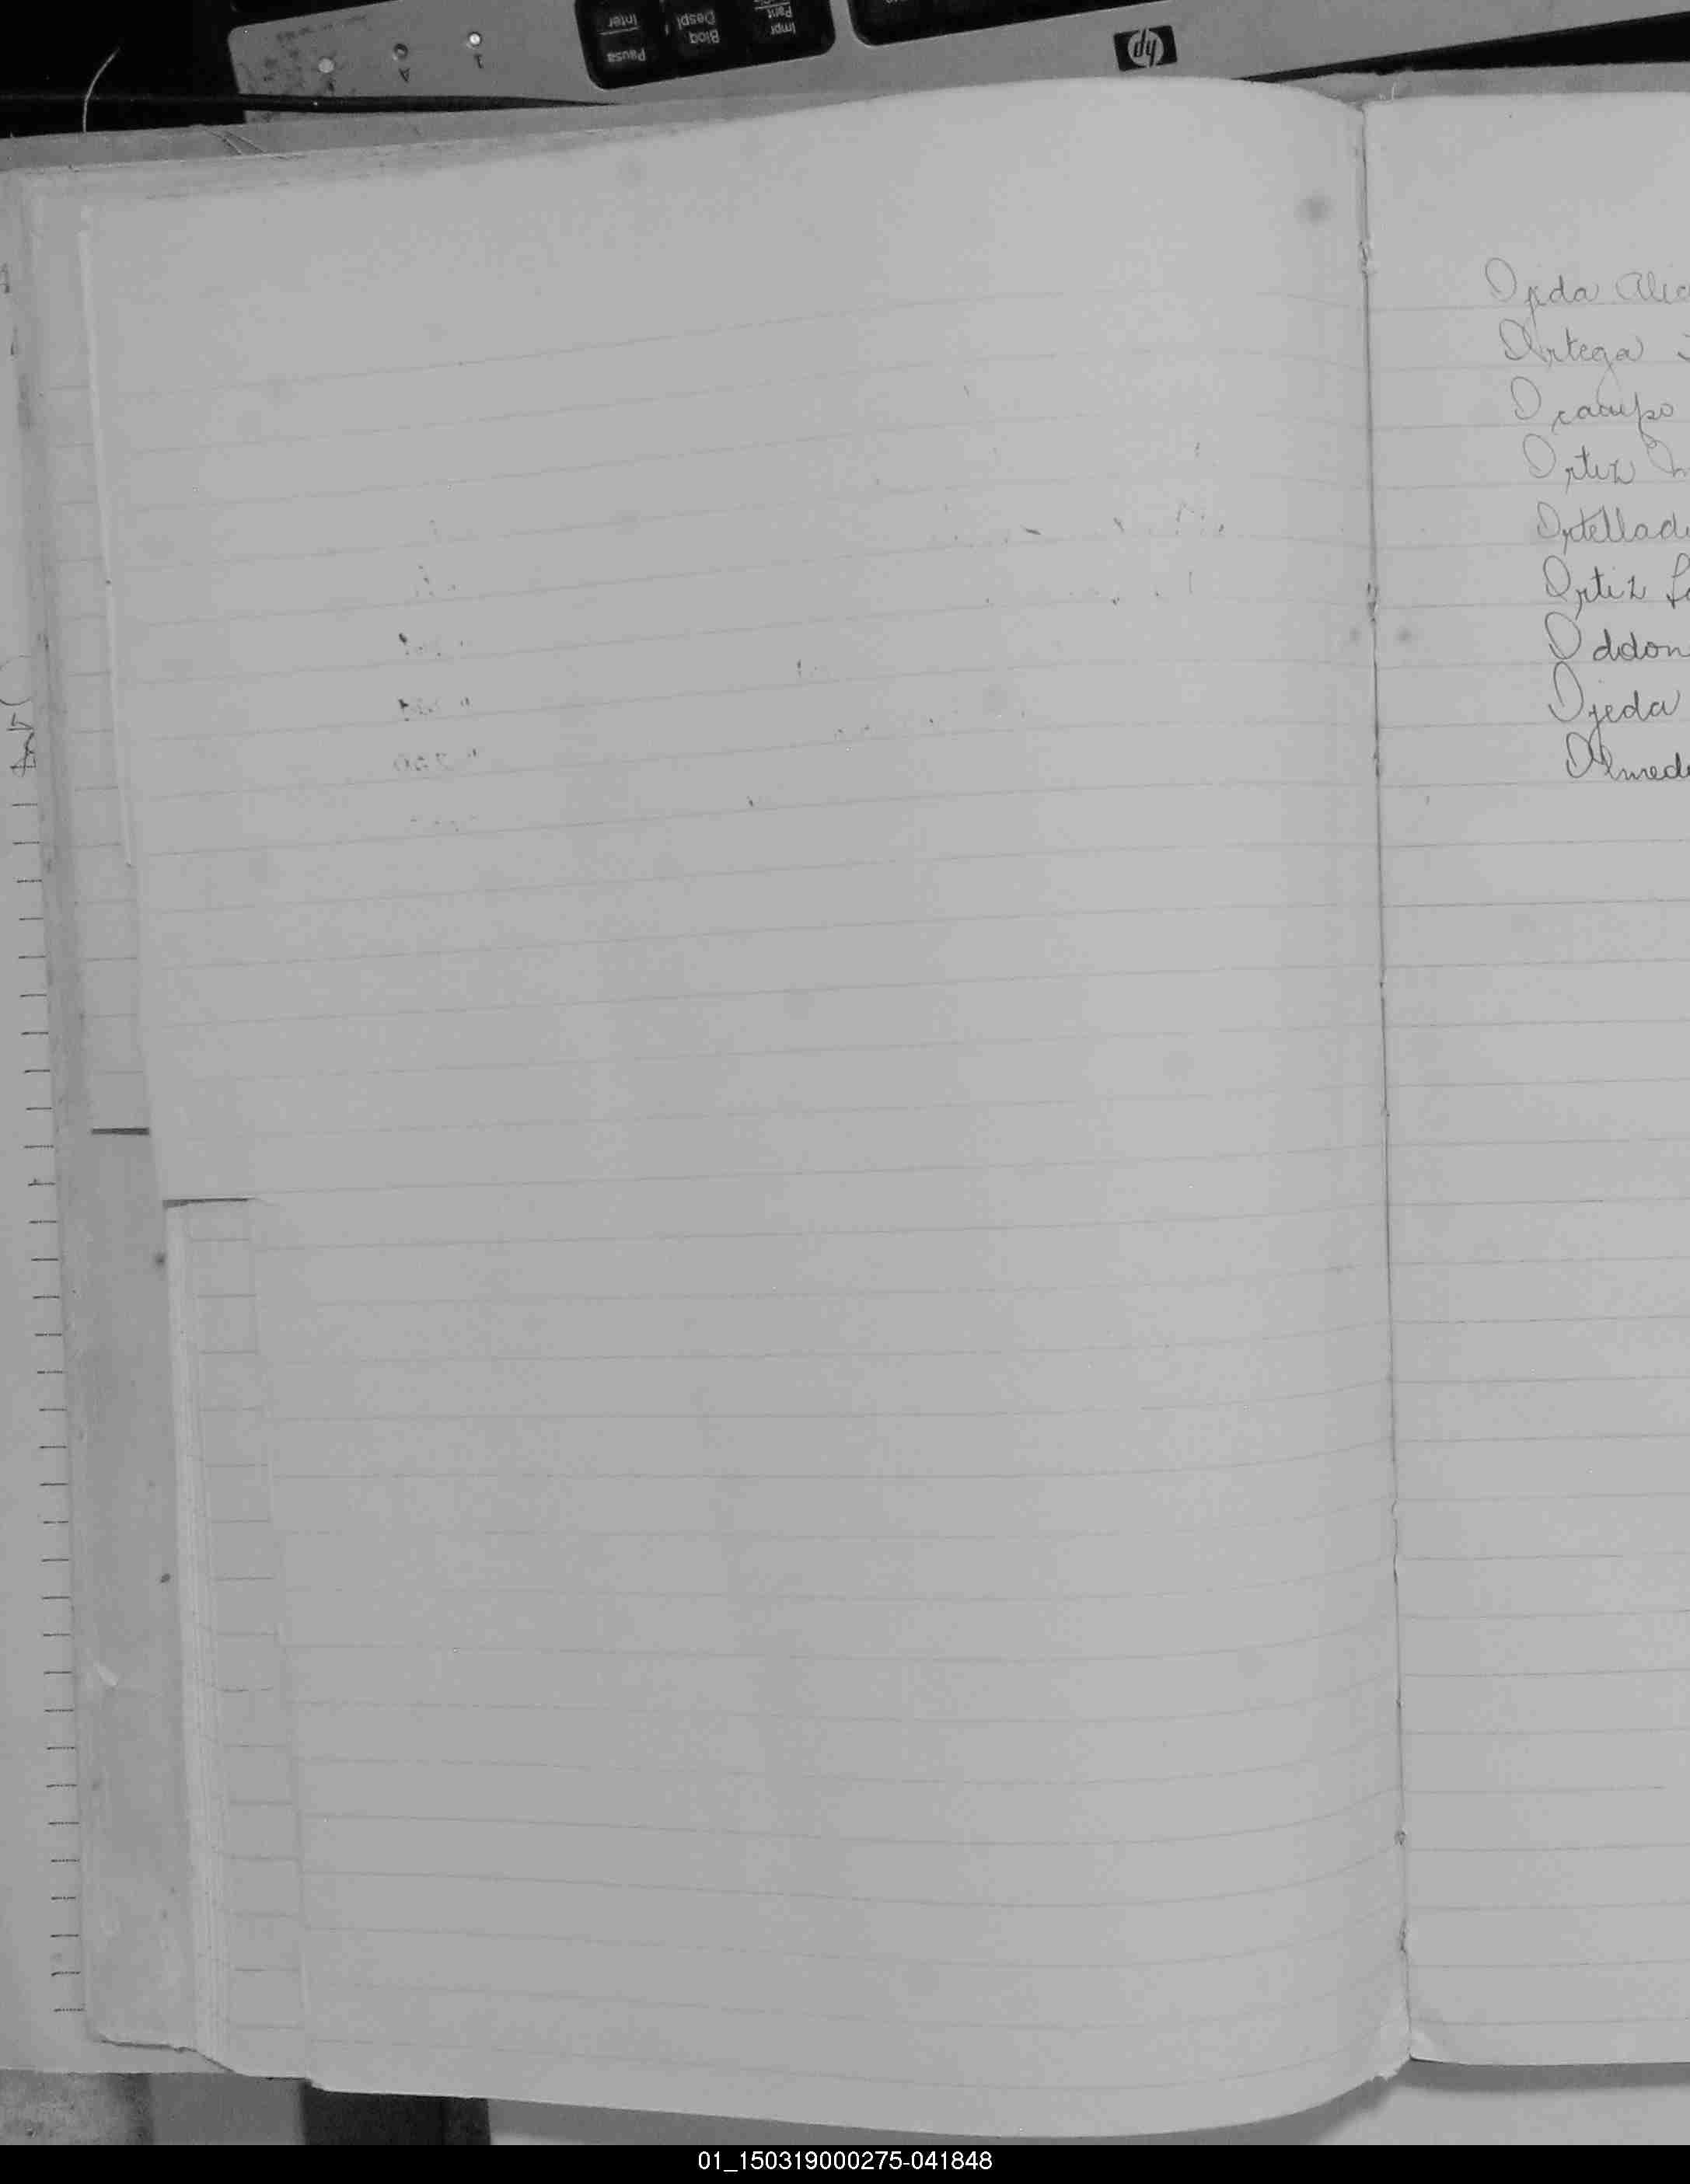 Inter
Pausa
Despl
Bloq
Pant
Impr
hp
A
1
Ojeda Alic
Ortega
Ocampo
Ortiz
Ortellad
Ortiz
Oddon
Ojeda
Olmed
01_150319000275-041848